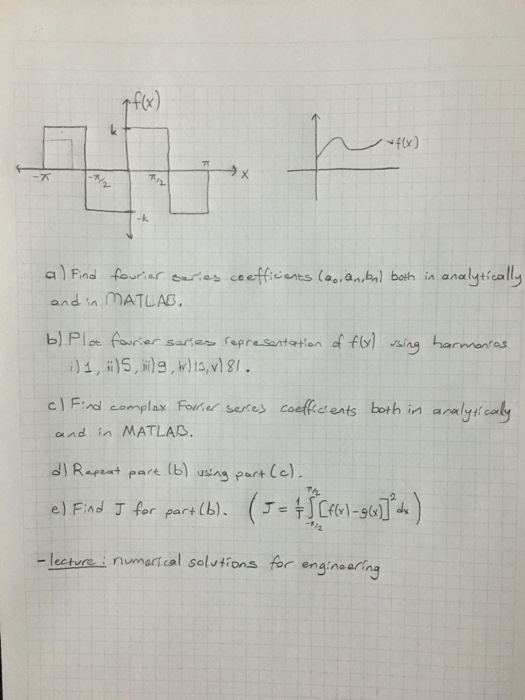 f(x)
k
-π
-π/2
π/2
π
x
-k
f(x)
a) Find fourier series coefficients (a₀, aₙ, bₙ) both in analytically
and in MATLAB.
b) Plot fourier series representation of f(x) using harmonics
i) 1, ii) 5, iii) 9, iv) 13, v) 81.
c) Find complex Fourier series coefficients both in analytically
and in MATLAB.
d) Repeat part (b) using part (c).
e) Find J for part (b). (J = 1/T ∫_{-π/2}^{π/2} [f(x)-g(x)]² dx)
- lecture : numerical solutions for engineering